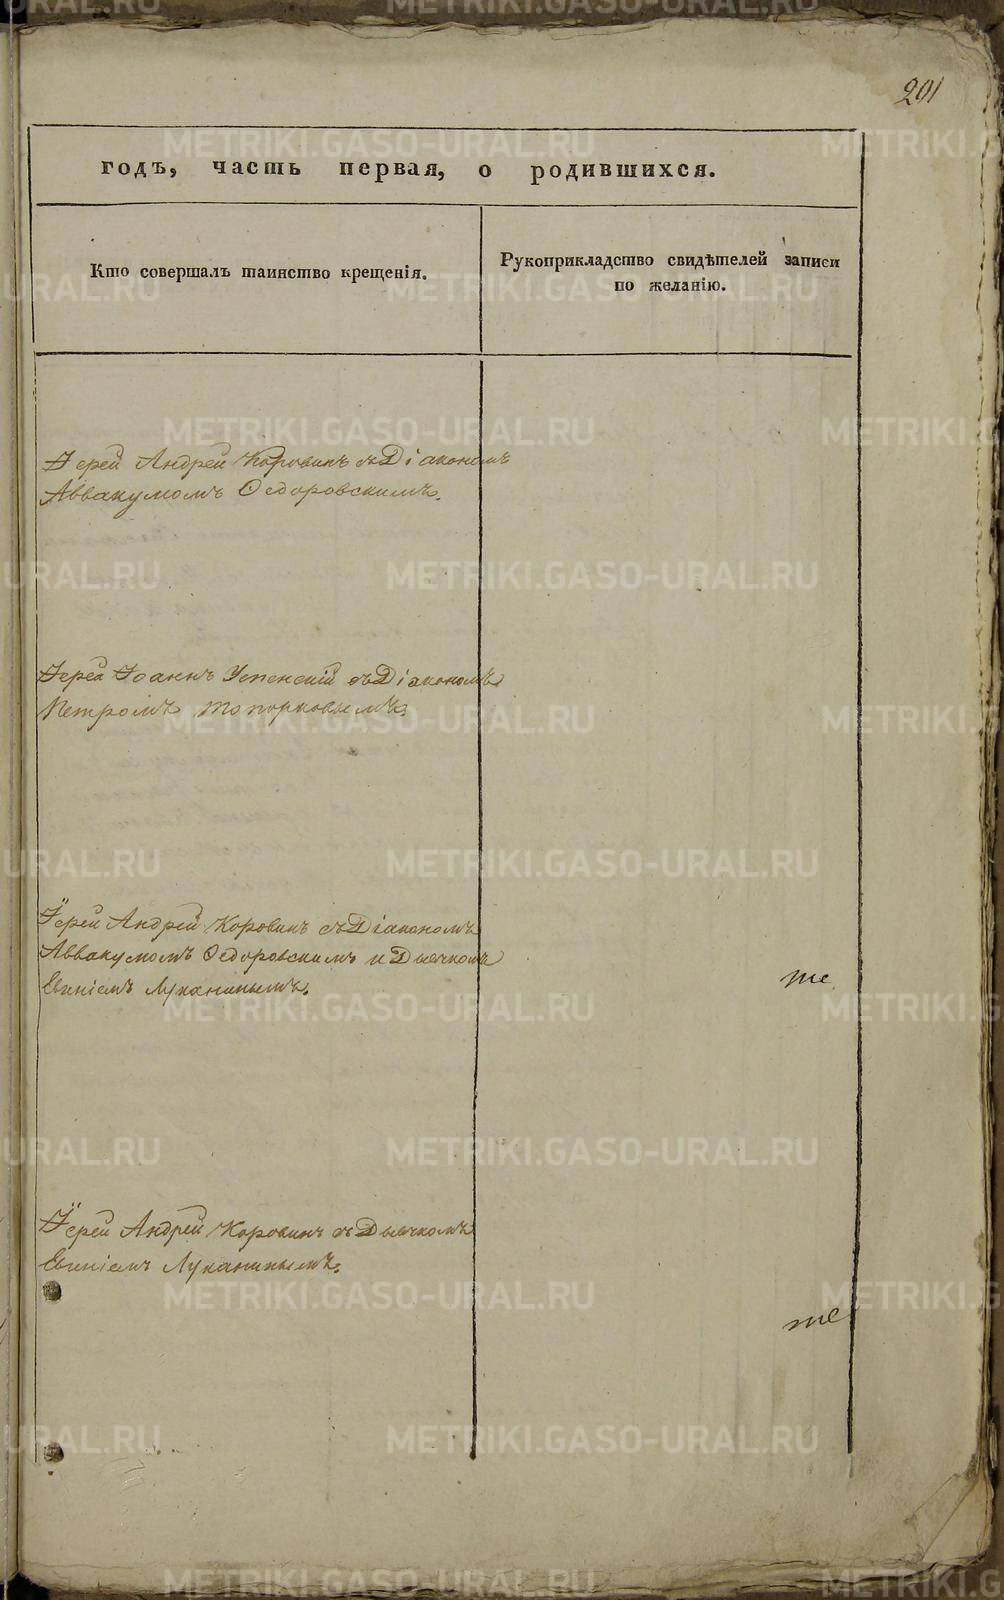 201
годъ, часть первая, о родившихся.
Кто совершалъ таинство крещенія.
Рукоприкладство свидѣтелей записи
по желанію.
Іерей Андрей Коровинъ съ Діакономъ
Аввакумомъ Ѳедоровскимъ.
Іерей Іоаннъ Успенскій съ Діакономъ
Петромъ Топорковымъ.
Іерей Андрей Коровинъ съ Діакономъ
Аввакумомъ Ѳедоровскимъ и Дьячкомъ
Луканинымъ.
те
Іерей Андрей Коровинъ съ Дьячкомъ
Луканинымъ.
те
METRIKI.GASO-URAL.RU